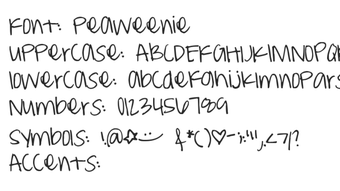 Font: Peaweenie
Uppercase: ABCDEFGHIJKLMNOPQR
lowercase: abcdefghijklmnopqrs
Numbers: 0123456789
Symbols: !@☆:) &*()♡-;:"',.<>/?
Accents: